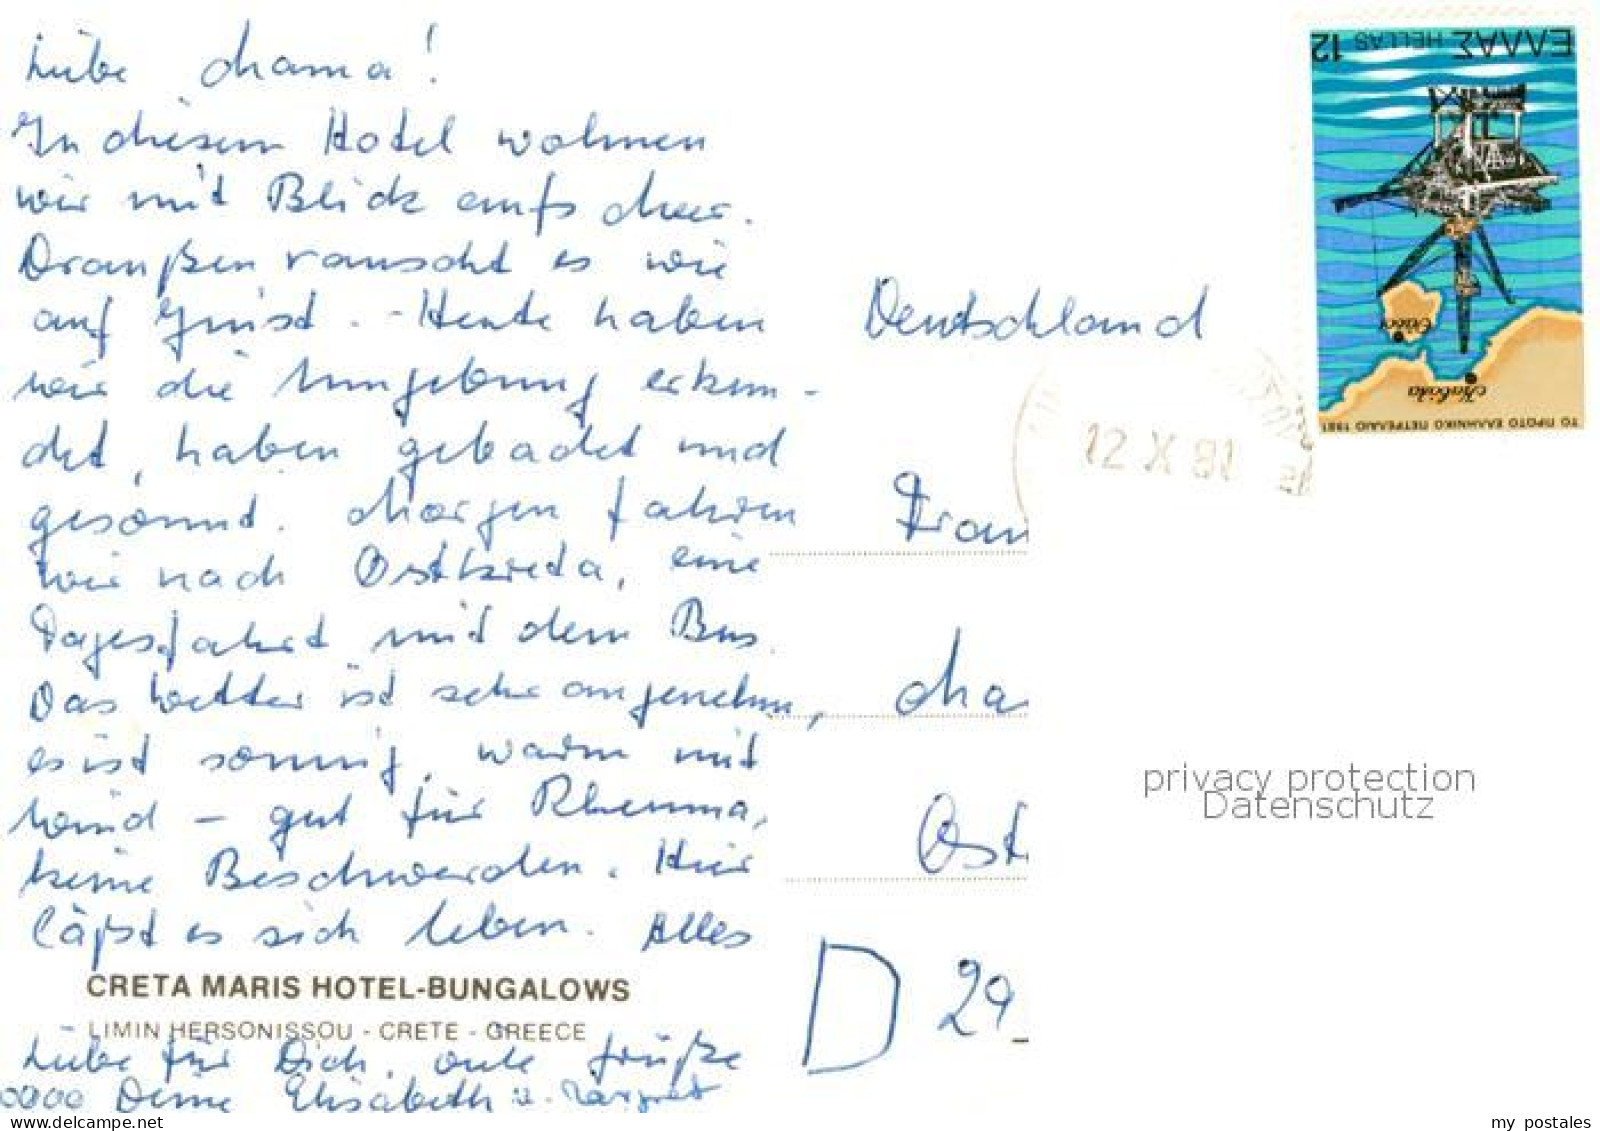 Liebe Mama!
In diesem Hotel wohnen
wir mit Blick aufs Meer.
Draußen rauscht es wie
auf Juist. - Heute haben
wir die Umgebung erkun-
det, haben gebadet und
gesonnt. Morgen fahren
wir nach Ostkreta, eine
Tagesfahrt mit dem Bus.
Das Wetter ist sehr angenehm,
es ist sonnig, warm mit
Wind - gut für Rheuma,
keine Beschwerden. Hier
läßt es sich leben. Alles
CRETA MARIS HOTEL-BUNGALOWS
LIMIN HERSONISSOU - CRETE - GREECE
Liebe für Dich, gute Grüße
Deine Elisabeth u.
ΕΛΛΑΣ HELLAS 12
Θάσος
Καβάλα
ΤΟ ΠΡΩΤΟ ΕΛΛΗΝΙΚΟ ΠΕΤΡΕΛΑΙΟ 1981
Deutschland
12 X 81
Frau
Ma
Ost
D 29
privacy protection
Datenschutz
my postales